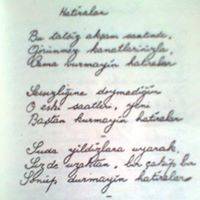 Hatıralar
Bu tatlı akşam saatinde,
Görünmez kanatlarınızla,
Cama vurmayın hatıralar
Sessizliğine doymediğin
O eski saatleri, yeni
Baştan kurmayın hatıralar
Suda yıldızlara uyarak,
Siz de uzaktan, bir çakıp bir
Sönüp durmayın hatıralar